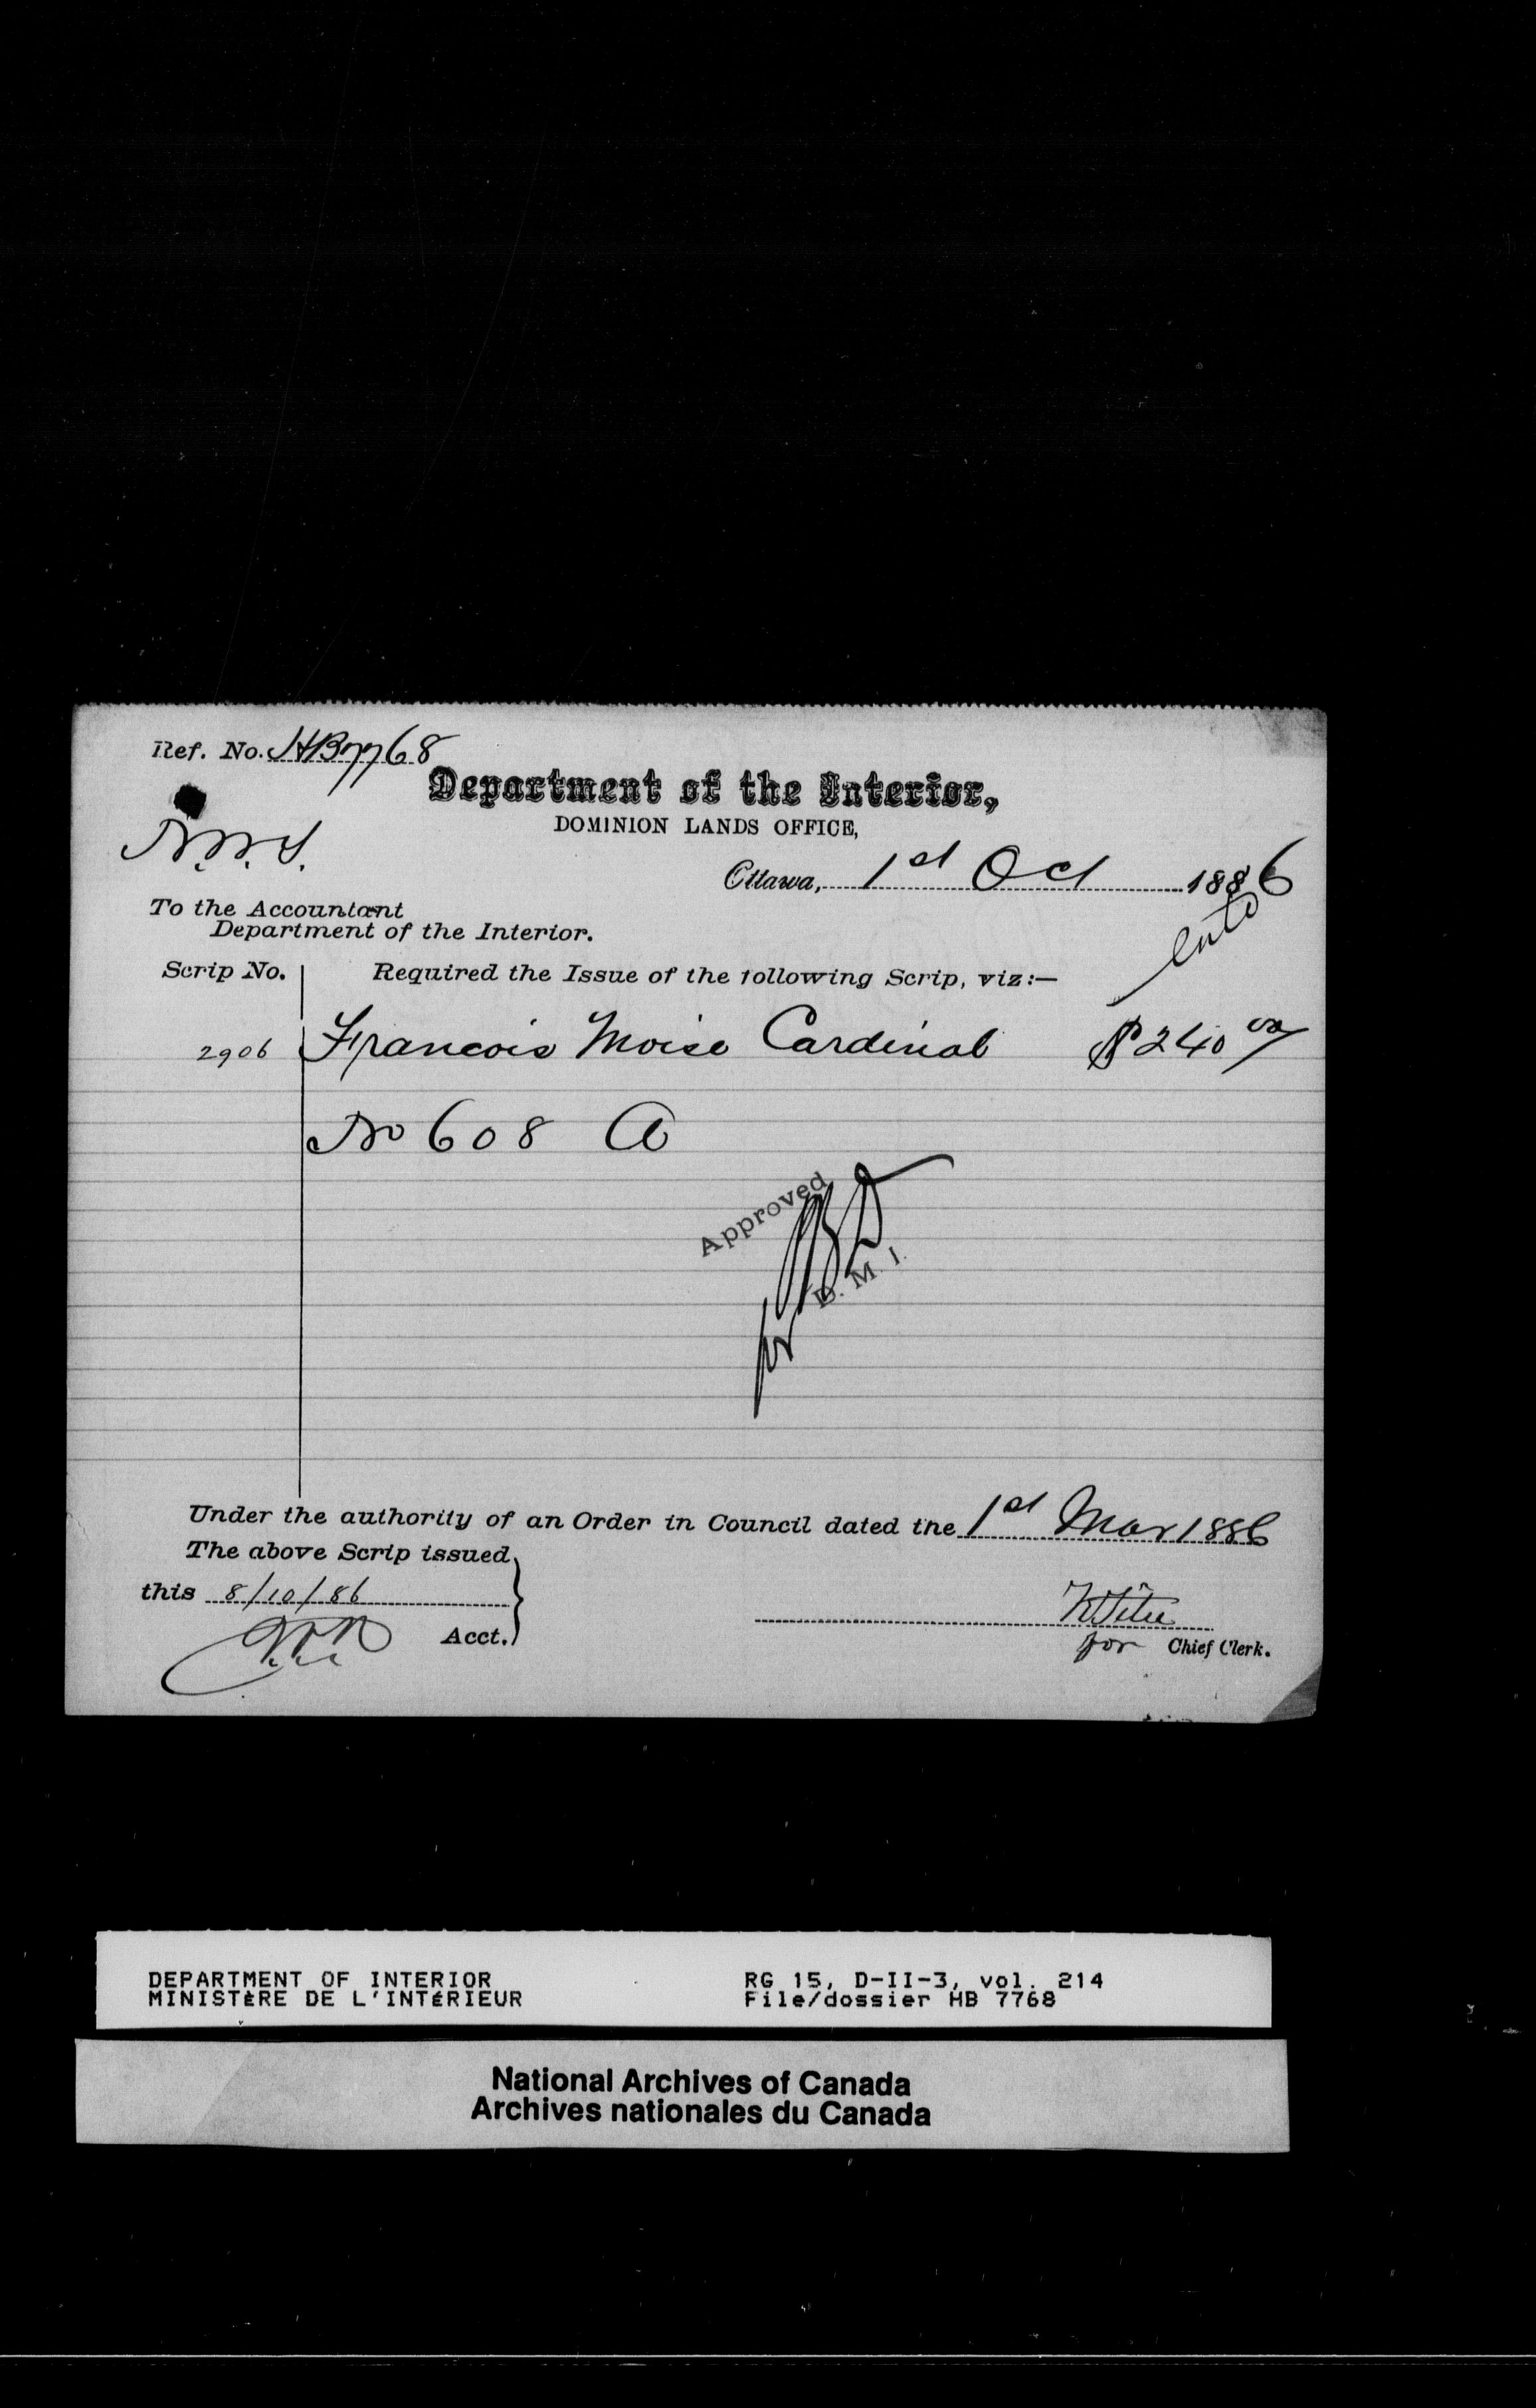 Ref. No. HB7768
Department of the Interior,
DOMINION LANDS OFFICE,
Ottawa, 1st Oct 1886
To the Accountant
Department of the Interior.
Scrip No. Required the Issue of the following Scrip, viz:—
2906 Francois Moise Cardinal $240 00
No 608 A
Approved
for
D. M. I.
Under the authority of an Order in Council dated the 1st Mar 1886
The above Scrip issued
this 8/10/86
Acct.
for Chief Clerk.
DEPARTMENT OF INTERIOR
MINISTÈRE DE L'INTÉRIEUR
RG 15, D-II-3, vol. 214
File/dossier HB 7768
National Archives of Canada
Archives nationales du Canada